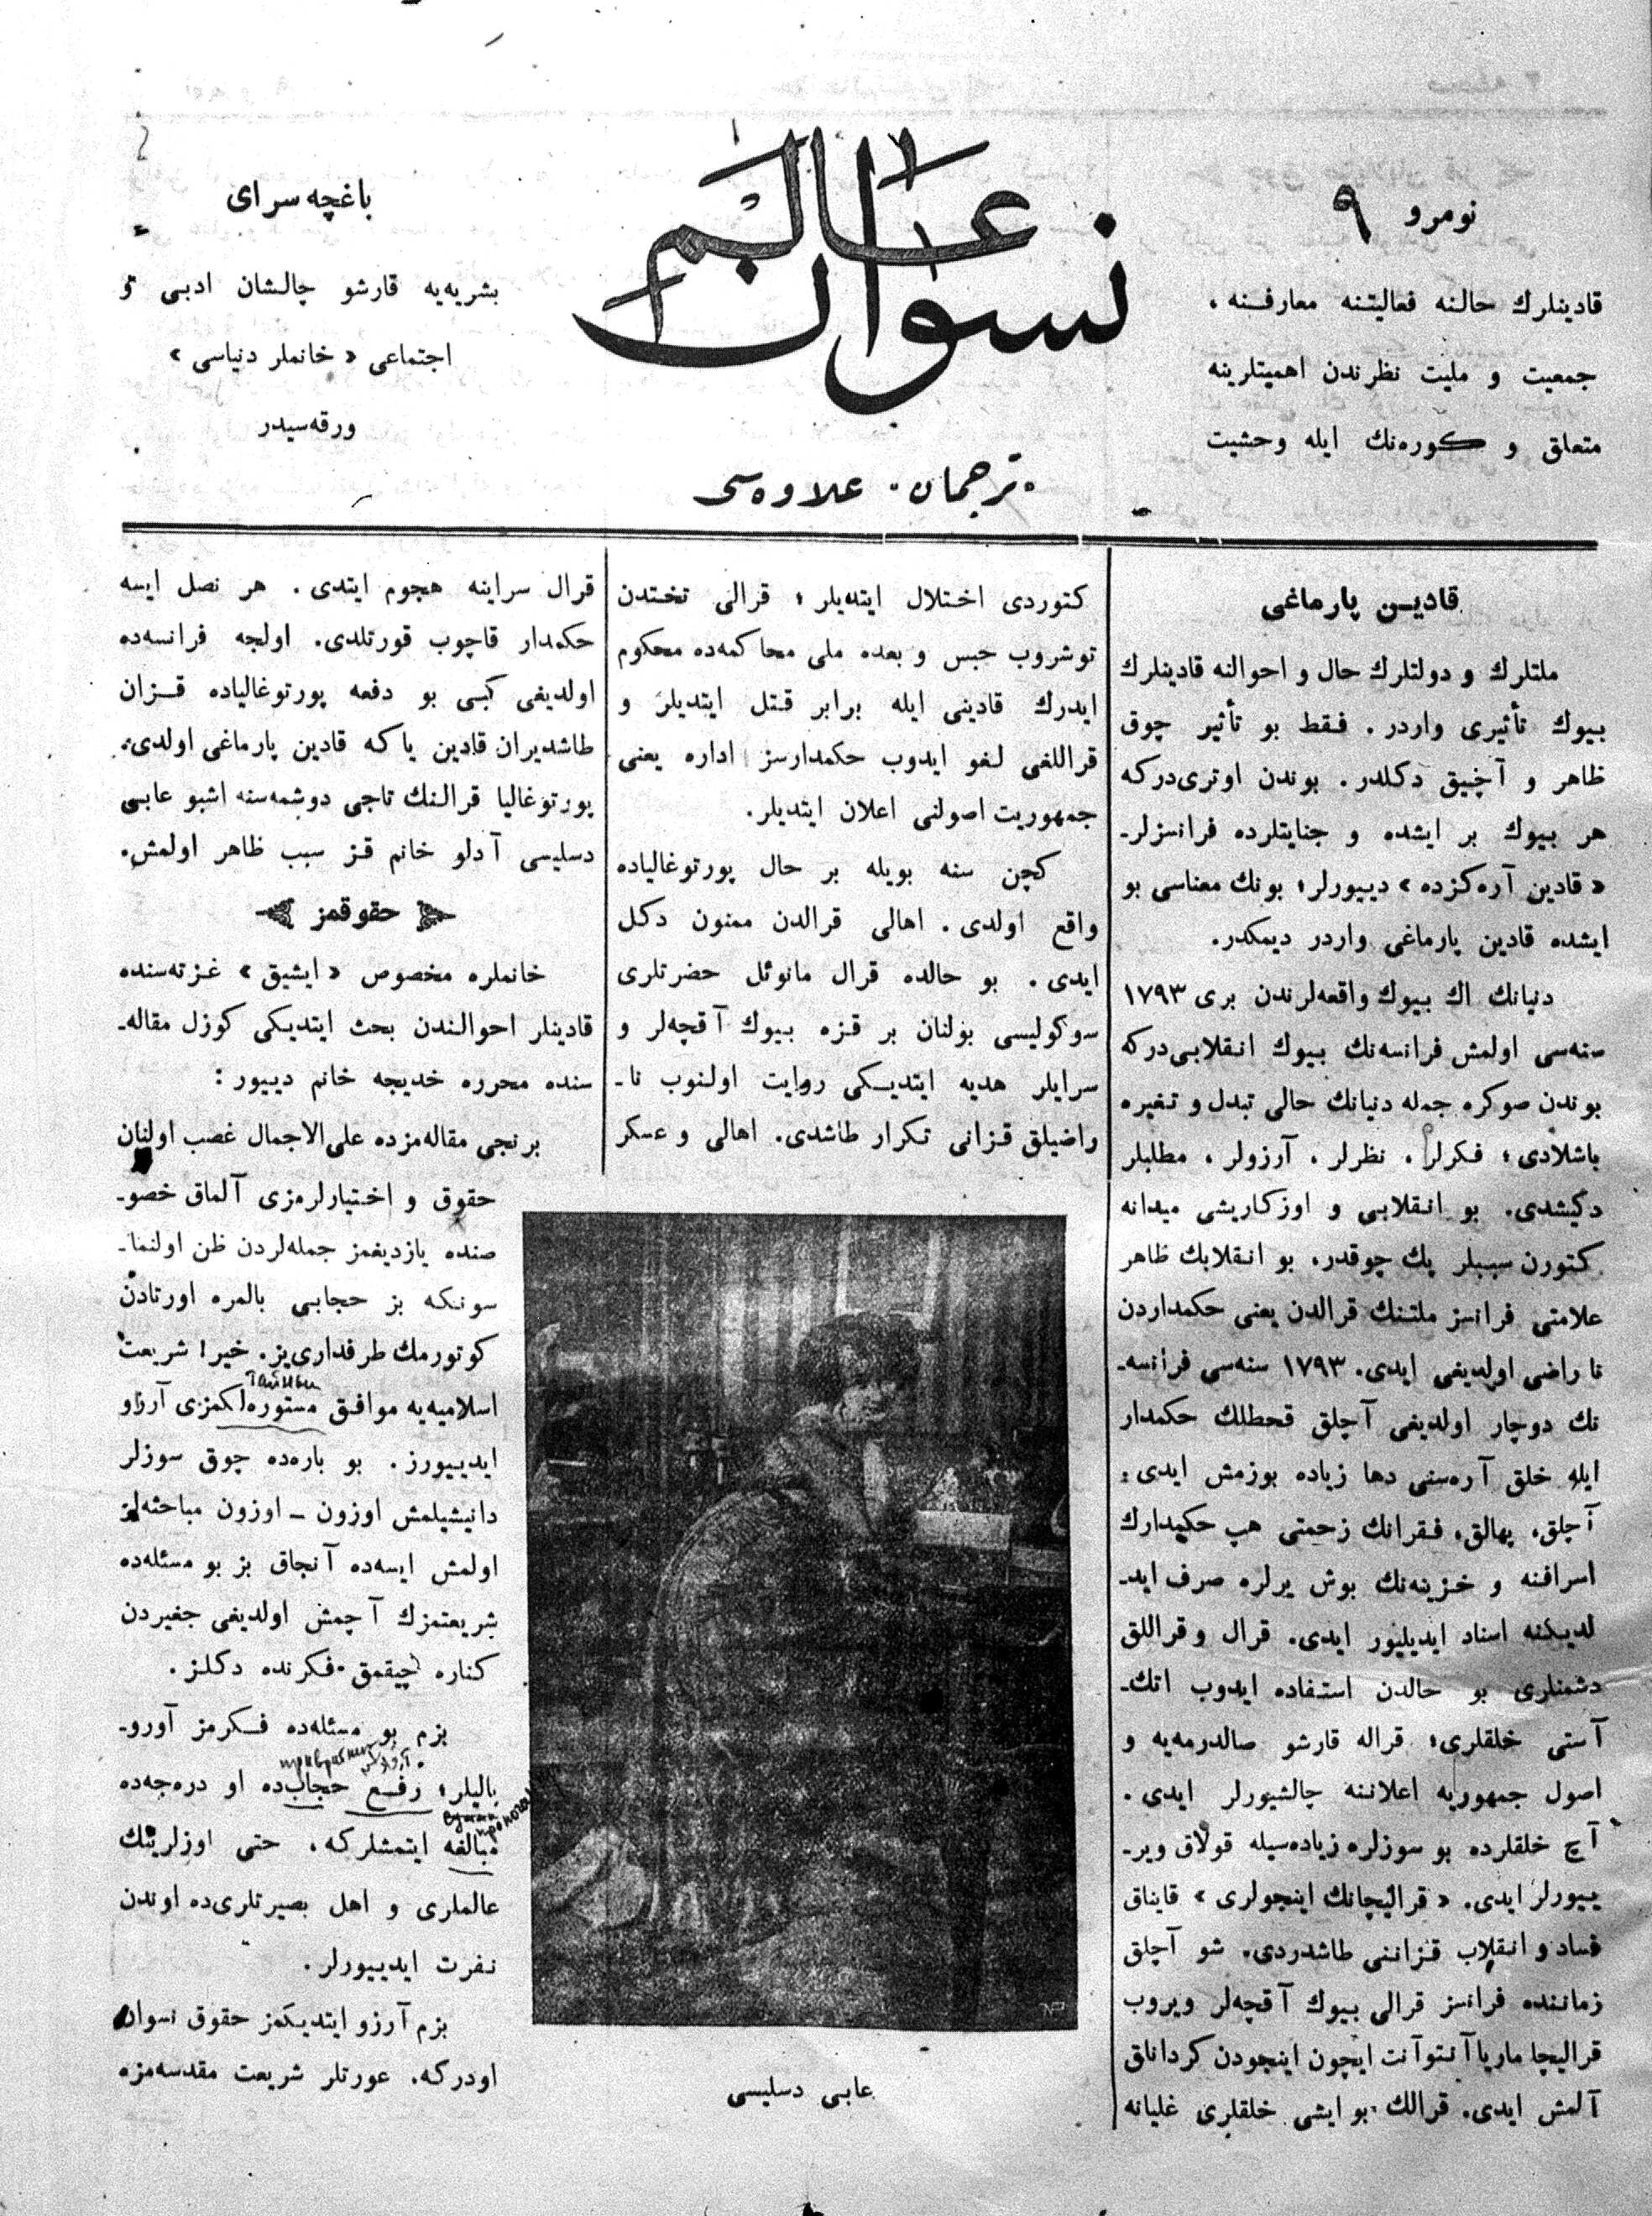 نومرو ۹
قادینلرك حالنه فعالیتنه معارفنه ،
جمعیت و ملیت نظرندن اهمیتلرینه
متعلق و كوره‌نك ایله وحشیت
عالم نسوان
ترجمان علاوه‌سی
باغچه سرای
بشریه‌یه قارشو چالشان ادبی و
اجتماعی « خانملر دنیاسی »
ورقه‌سیدر
قادین پارماغی
ملتلرك و دولتلرك حال و احوالنه قادینلرك
بیوك تأثیری واردر . فقط بو تأثیر چوق
ظاهر و آچیق دكلدر . بوندن اوتری‌دركه
هر بیوك بر ایشده و جنایتلرده فرانسزلر-
« قادین آره‌كزده » دییورلر؛ بونك معناسی بو
ایشده قادین پارماغی واردر دیمكدر.
دنیانك اك بیوك واقعه‌لرندن بری ۱۷۹۳
سنه‌سی اولمش فرانسه‌نك بیوك انقلابی‌دركه
بوندن صوكره جمله دنیانك حالی تبدل و تغیره
باشلادی؛ فكرلر ، نظرلر ، آرزولر ، مطلبلر
دكیشدی. بو انقلابی و اوزكاریشی میدانه
كتورن سببلر پك چوقدر. بو انقلابك ظاهر
علامتی فرانسز ملتنك قرالدن یعنی حكمداردن
نا راضی اولدیغی ایدی. ۱۷۹۳ سنه‌سی فرانسه-
نك دوچار اولدیغی آچلق قحطلك حكمدار
ایله خلق آره‌سنی دها زیاده بوزمش ایدی؛
آچلق، بهالق، فقرانك زحمتی هپ حكمدارك
اسرافنه و خزینه‌نك بوش یرلره صرف اید-
لدیكنه اسناد ایدیلیور ایدی. قرال و قراللق
دشمنلری بو حالدن استفاده ایدوب اتك-
آستی خلقلری؛ قراله قارشو صالدرمه‌یه و
اصول جمهوریه اعلاننه چالشیورلر ایدی .
آچ خلقلرده بو سوزلره زیاده‌سیله قولاق ویر-
ییورلر ایدی. « قرالیچانك اینجولری » قایناق
فساد و انقلاب قزاننی طاشدردی. شو آچلق
زماننده فرانسز قرالی بیوك آقچه‌لر ویروب
قرالیچا ماریا آنتوآنت ایچون اینجودن كردانلق
آلمش ایدی. قرالك بو ایشی خلقلری غلیانه
كتوردی اختلال ایتدیلر؛ قرالی تختدن
توشروب حبس و بعده ملی محاكمه‌ده محكوم
ایدرك قادینی ایله برابر قتل ایتدیلر و
قراللغی لغو ایدوب حكمدارسز اداره یعنی
جمهوریت اصولنی اعلان ایتدیلر.
كچن سنه بویله بر حال پورتوغالیاده
واقع اولدی . اهالی قرالدن ممنون دكل
ایدی . بو حالده قرال مانوئل حضرتلری
سوكولیسی بولنان بر قزه بیوك آقچه‌لر و
سرایلر هدیه ایتدیكی روایت اولنوب نا-
راضیلق قزانی تكرار طاشدی. اهالی و عسكر
عابی دسلیسی
قرال سراینه هجوم ایتدی . هر نصل ایسه
حكمدار قاچوب قورتلدی. اولجه فرانسه‌ده
اولدیغی كبی بو دفعه پورتوغالیاده قزان
طاشدیران قادین یاكه قادین پارماغی اولدی.
پورتوغالیا قرالنك تاجی دوشمه‌سنه اشبو عابی
دسلیسی آدلو خانم قز سبب ظاهر اولمش.
حقوقمز
خانملره مخصوص « ایشیق » غزته‌سنده
قادینلر احوالندن بحث ایتدیكی كوزل مقاله-
سنده محرره خدیجه خانم دییور :
برنجی مقاله‌مزده علی‌الاجمال غصب اولنان
حقوق و اختیارلرمزی آلماق خصو-
صنده یازدیغمز جمله‌لردن ظن اولنما-
سونكه بز حجابی بالمره اورتادن
كوتورمك طرفداری‌یز. خیر! شریعت
اسلامیه‌یه موافق مستوره‌لكمزی آرزو
ایدییورز . بو باره‌ده چوق سوزلر
دانیشیلمش اوزون ـ اوزون مباحثه‌لر
اولمش ایسه‌ده آنجاق بز بو مسئله‌ده
شریعتمزك آچمش اولدیغی جغیردن
كناره چیقمق فكرنده دكلز .
بزم بو مسئله‌ده فكرمز آورو-
پالیلر؛ رفع حجاب‌ده او درجه‌ده
مبالغه ایتمشلركه، حتی اوزلرینك
عالملری و اهل بصیرتلری‌ده اوندن
نفرت ایدییورلر .
بزم آرزو ایتدیكمز حقوق نسوان
اودركه، عورتلر شریعت مقدسه‌مزه